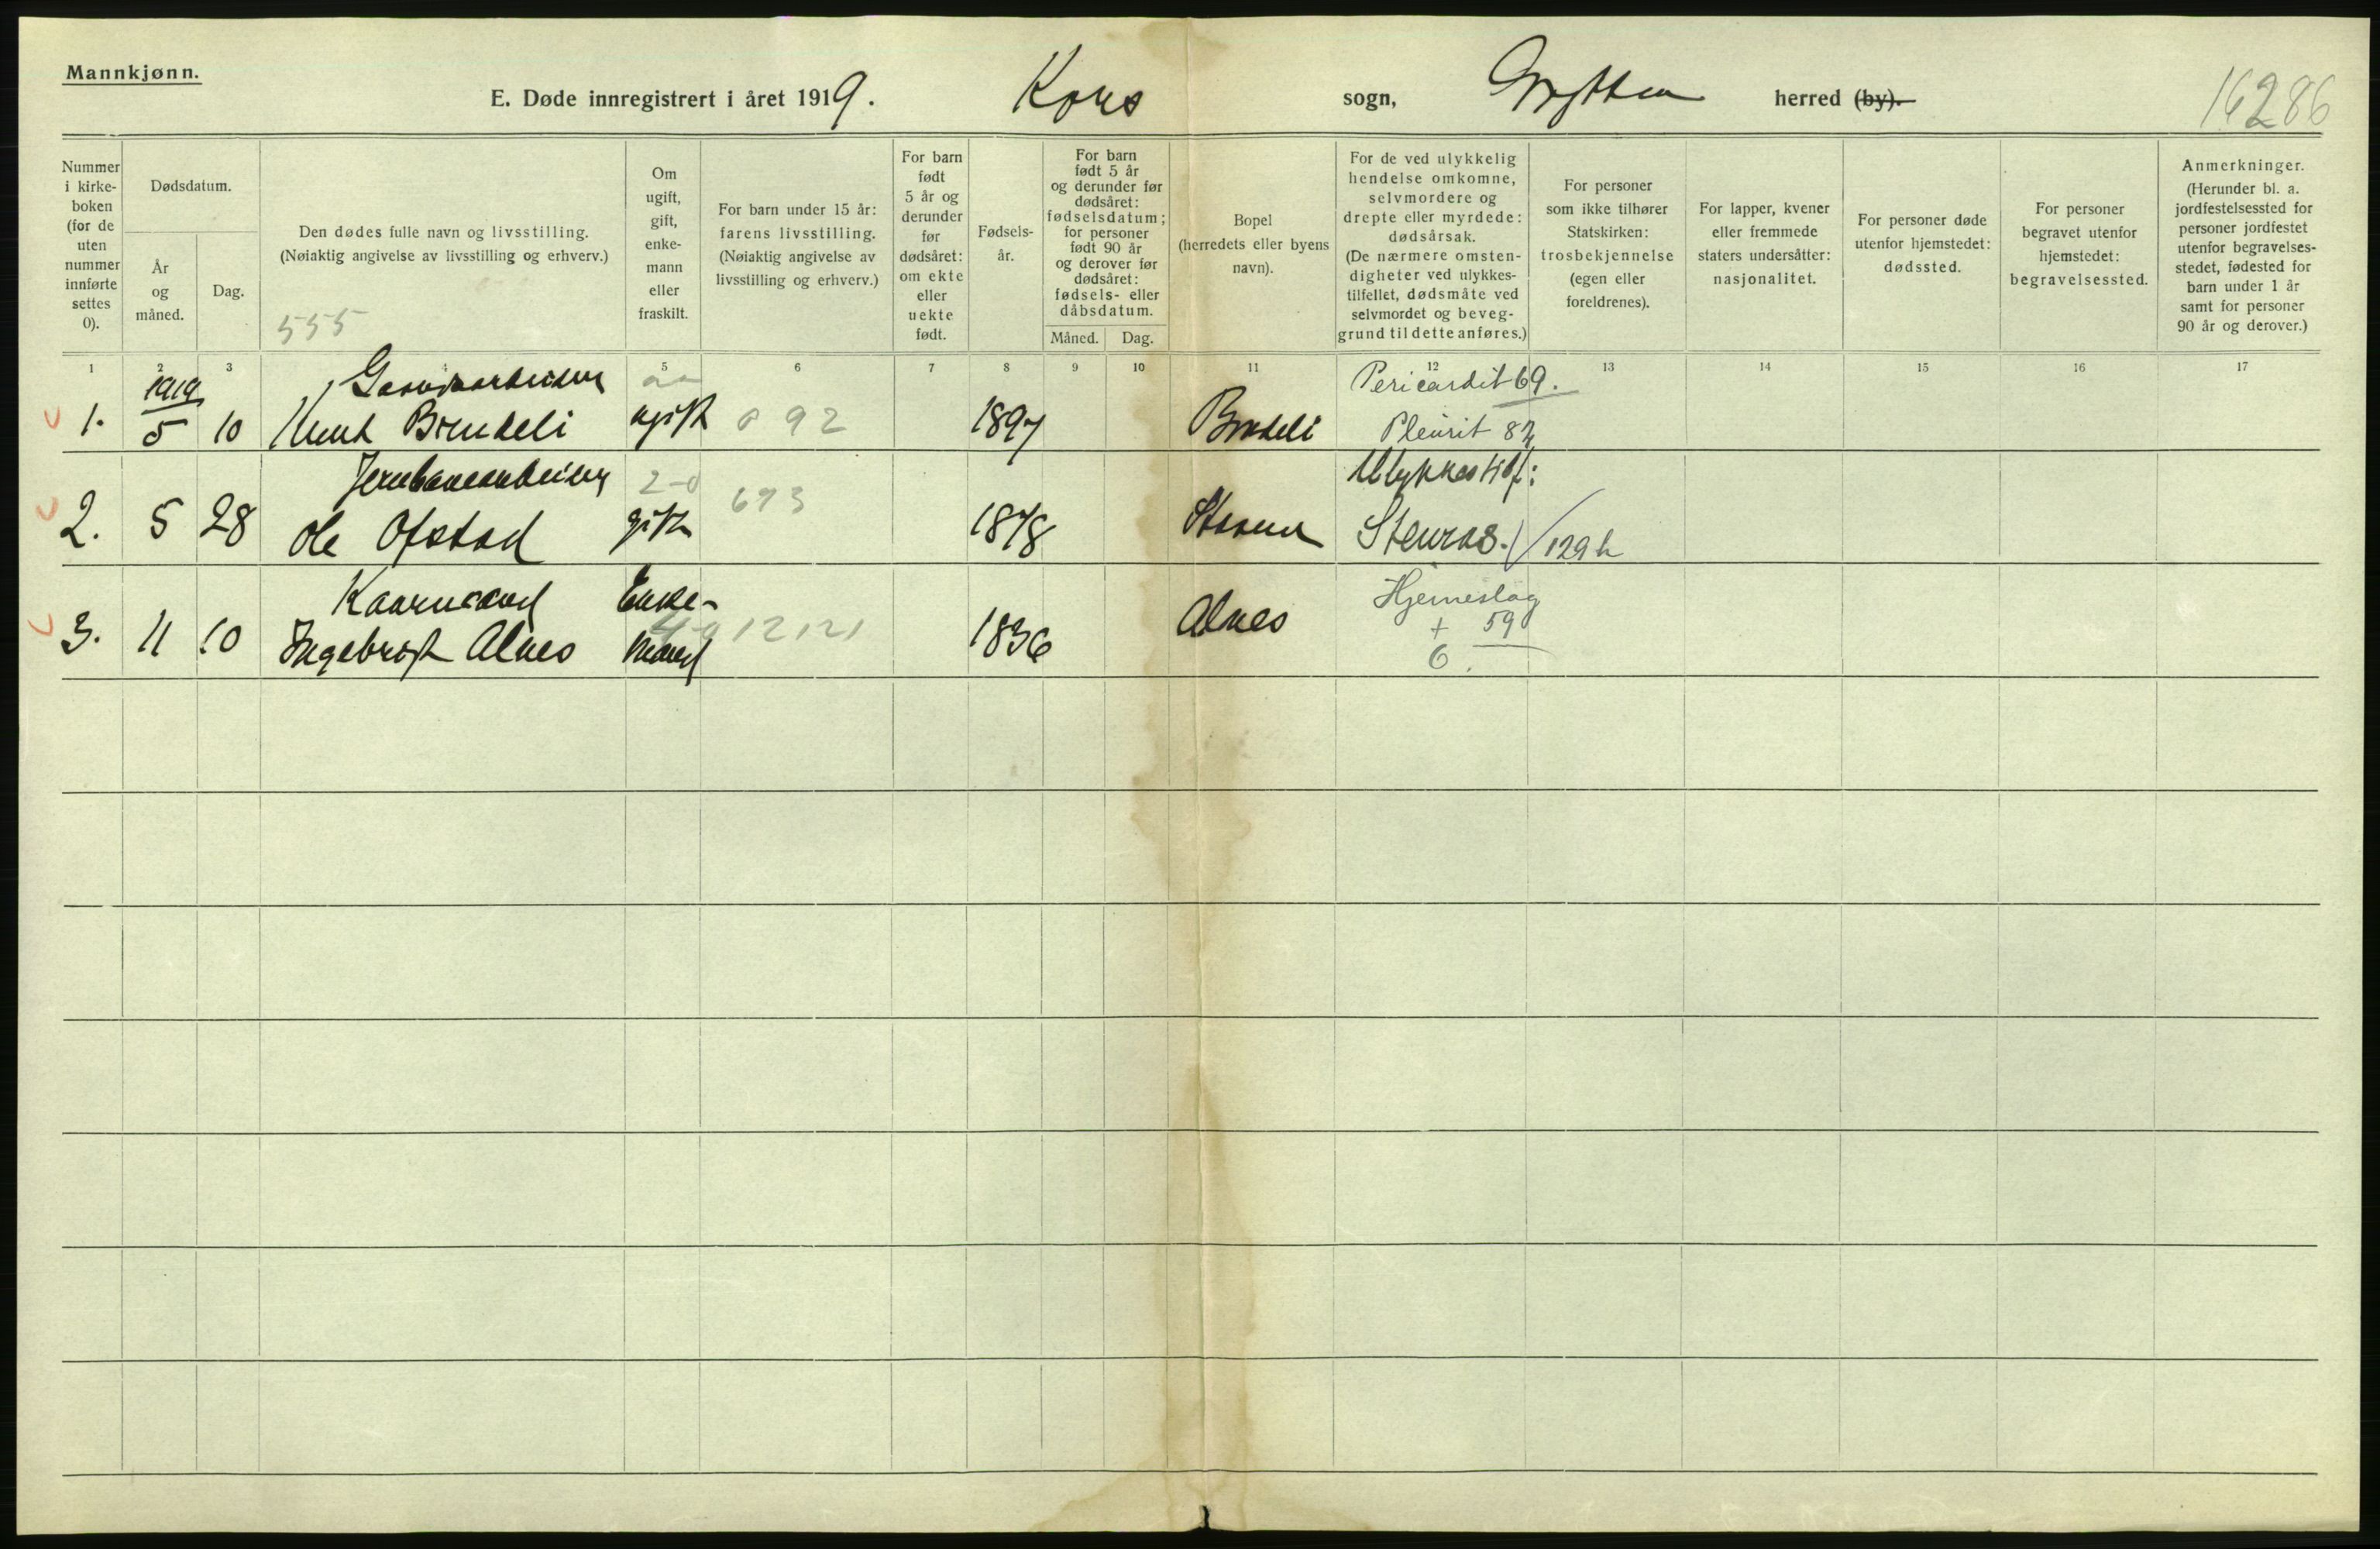 Mannkjønn.
E. Døde innregistrert i året 1919. Kors sogn, Grytten herred (by).
16286
Nummer i kirke-boken (for de uten nummer innførte settes 0).
Dødsdatum.
År og måned.
Dag.
Den dødes fulle navn og livsstilling.
(Nøiaktig angivelse av livsstilling og erhverv.)
555
Om ugift, gift, enke-mann eller fraskilt.
For barn under 15 år: farens livsstilling.
(Nøiaktig angivelse av livsstilling og erhverv.)
For barn født 5 år og derunder før dødsåret: om ekte eller uekte født.
Fødsels-år.
For barn født 5 år og derunder før dødsåret: fødselsdatum; for personer født 90 år og derover før dødsåret: fødsels- eller dåbsdatum.
Måned.
Dag.
Bopel
(herredets eller byens navn).
For de ved ulykkelig hendelse omkomne, selvmordere og drepte eller myrdede: dødsårsak.
(De nærmere omsten-digheter ved ulykkes-tilfellet, dødsmåte ved selvmordet og beveg-grund til dette anføres.)
For personer som ikke tilhører Statskirken: trosbekjennelse (egen eller foreldrenes).
For lapper, kvener eller fremmede staters undersåtter: nasjonalitet.
For personer døde utenfor hjemstedet: dødssted.
For personer begravet utenfor hjemstedet: begravelsessted.
Anmerkninger.
(Herunder bl. a. jordfestelsessted for personer jordfestet utenfor begravelses-stedet, fødested for barn under 1 år samt for personer 90 år og derover.)
1 2 3 4 5 6 7 8 9 10 11 12 13 14 15 16 17
1919 Gaardsarbeider Pericardit 69.
1. 5 10 Knut Brudeli ugift 092 1897 Brudeli Pleurit 82
Jernbanearbeider 2-0 673 Ulykkestilf:
2. 5 28 Ole Ofstad gift 1878 Stenras. 129 h
Kaarmand Enke- Hjerneslag
4-0 12121 + 59
3. 11 10 Ingebrigt Alnes mand 1836 Alnes 6.